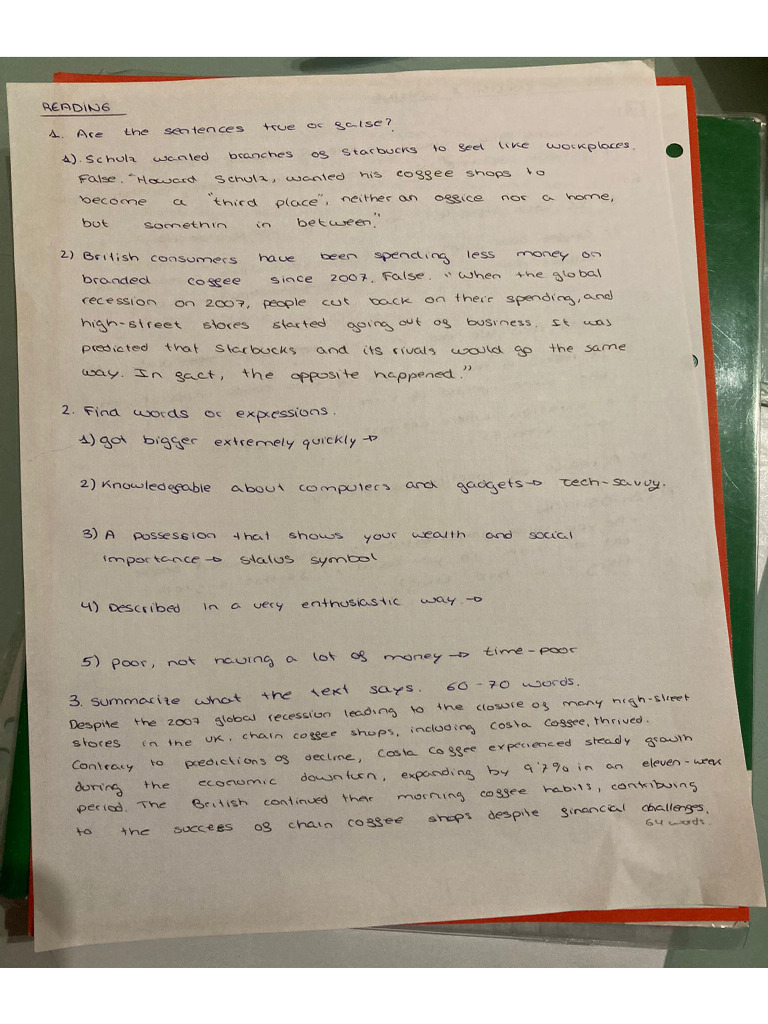 READING
1. Are the sentences true or false?
1). Schulz wanted branches of Starbucks to feel like workplaces.
False. "Howard Schulz, wanted his coffee shops to
become a "third place", neither an office nor a home,
but somethin in between."
2) British consumers have been spending less money on
branded coffee since 2007. False. "When the global
recession on 2007, people cut back on their spending, and
high-street stores started going out of business. It was
predicted that Starbucks and its rivals would go the same
way. In fact, the opposite happened."
2. Find words or expressions.
1) got bigger extremely quickly →
2) Knowledgeable about computers and gadgets → tech-savvy.
3) A possession that shows your wealth and social
importance → status symbol
4) Described in a very enthusiastic way. →
5) poor, not having a lot of money → time-poor
3. Summarize what the text says. 60-70 words.
Despite the 2007 global recession leading to the closure of many high-street
stores in the UK, chain coffee shops, including Costa Coffee, thrived.
Contrary to predictions of decline, Costa Coffee experienced steady growth
during the economic downturn, expanding by 9'7% in an eleven-week
period. The British continued their morning coffee habits, contribuing
to the success of chain coffee shops despite financial challenges.
64 words.